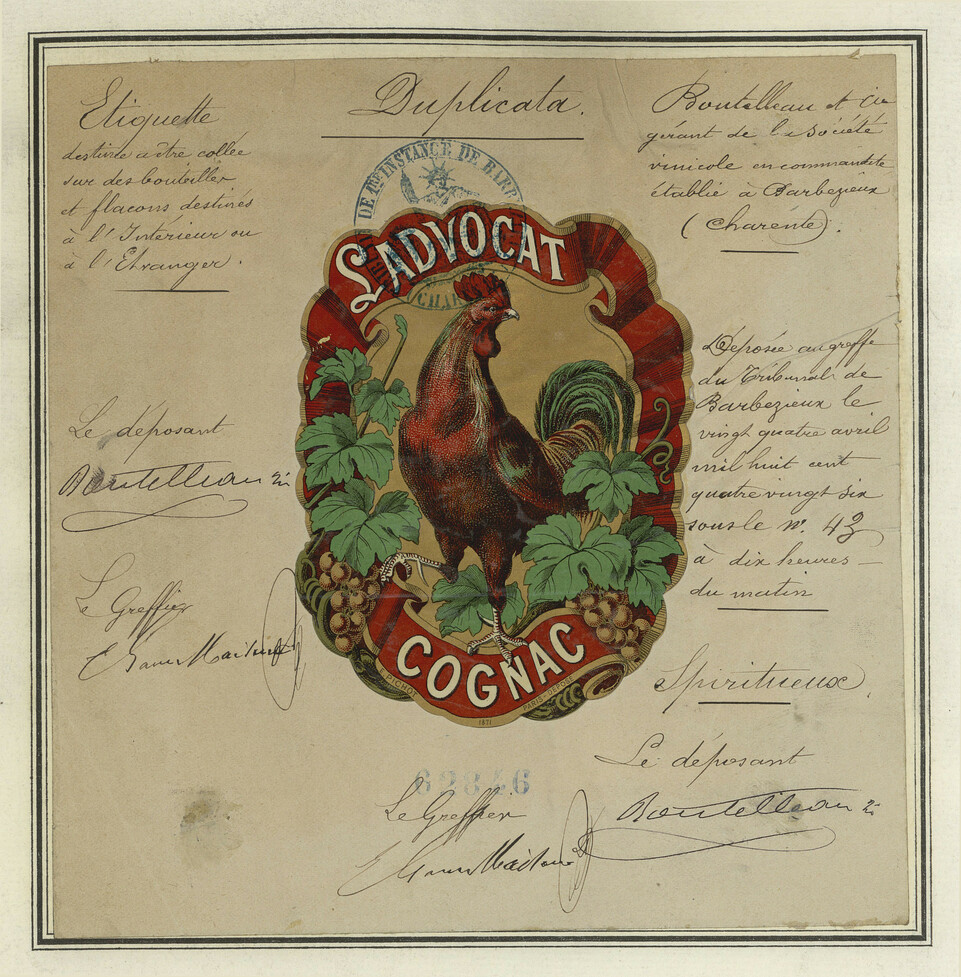 Duplicata.
Etiquette
destinée a être collée
sur des bouteilles
et flacons destinés
à l'Intérieur ou
à l'Etranger.
Boutelleau et Cie
gérant de la Société
vinicole en commandite
établie à Barbezieux
(Charente).
DE 1RE INSTANCE DE BARB
CHAR
L'ADVOCAT
COGNAC
E. PICHOT
PARIS-DEPOSE
1871
Le déposant
Boutelleau
Le Greffier
Déposée au greffe
du Tribunal de
Barbezieux le
vingt quatre avril
mil huit cent
quatre vingt six
sous le n°. 43
à dix heures
du matin
Spiritueux.
Le déposant
Boutelleau
Le Greffier